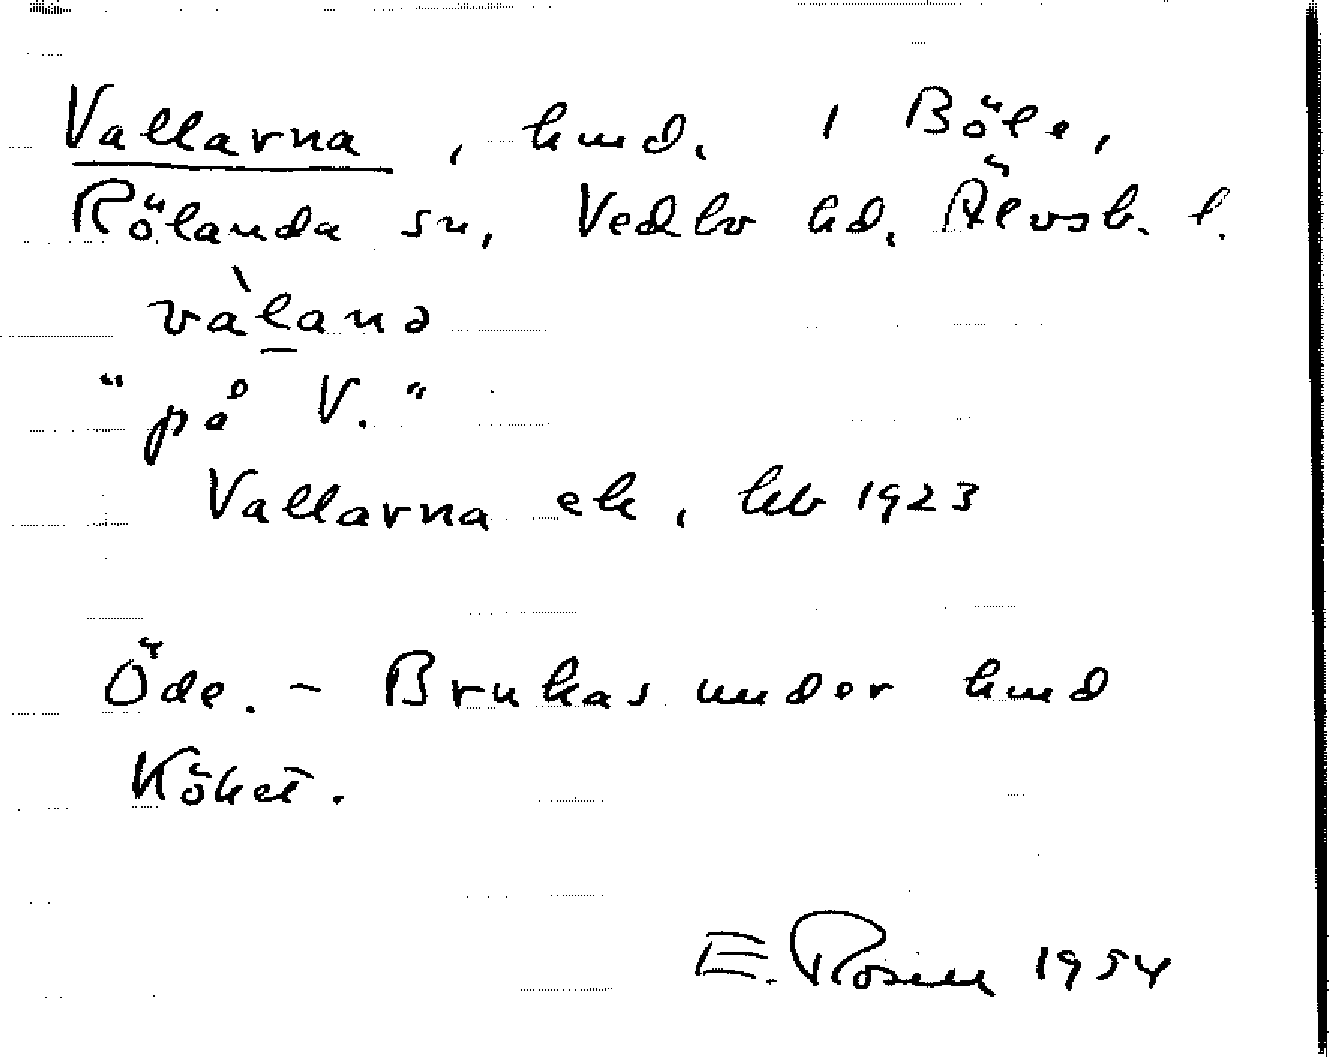 Vallarna, hmd. i Böle,
Rölanda sn, Vedbo hd. Älvsb. l.
và̱lana
"på V."
Vallarna ek, kb 1923
Öde. - Brukas under hmd
Köket.
E. Rosell 1954